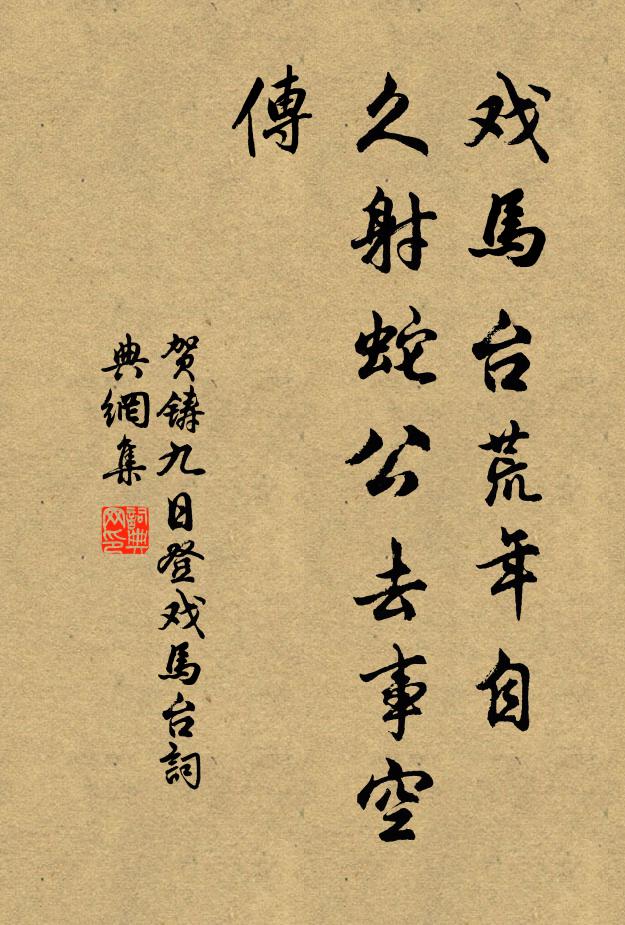 戏馬台荒年自
久射蛇公去事空
傳
贺鑄九日登戏馬台詞
典網集
詞典网印